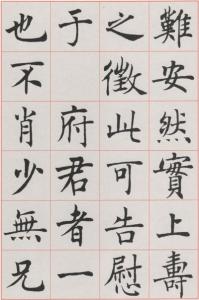 難安然實上壽
之徵此可告慰
于　府君者一
也不肖少無兄